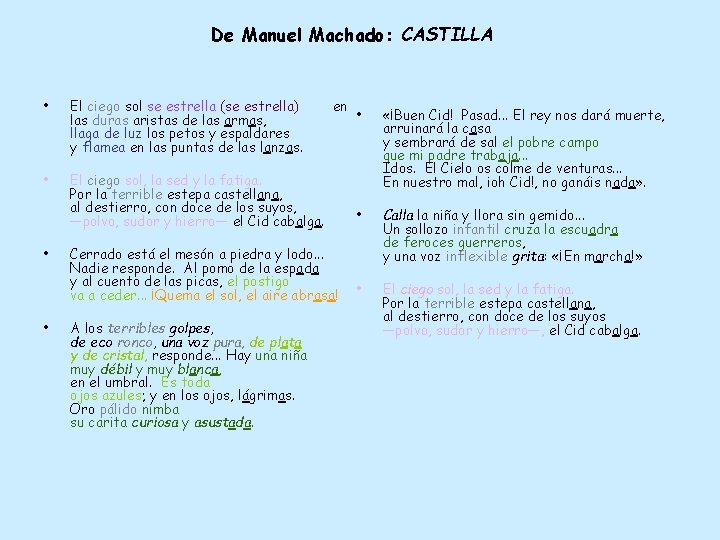 De Manuel Machado: CASTILLA
• El ciego sol se estrella (se estrella) en
las duras aristas de las armas,
llaga de luz los petos y espaldares
y flamea en las puntas de las lanzas.
• El ciego sol, la sed y la fatiga.
Por la terrible estepa castellana,
al destierro, con doce de los suyos,
—polvo, sudor y hierro— el Cid cabalga.
• Cerrado está el mesón a piedra y lodo...
Nadie responde. Al pomo de la espada
y al cuento de las picas, el postigo
va a ceder... ¡Quema el sol, el aire abrasa!
• A los terribles golpes,
de eco ronco, una voz pura, de plata
y de cristal, responde... Hay una niña
muy débil y muy blanca,
en el umbral. Es toda
ojos azules; y en los ojos, lágrimas.
Oro pálido nimba
su carita curiosa y asustada.
• «¡Buen Cid! Pasad... El rey nos dará muerte,
arruinará la casa
y sembrará de sal el pobre campo
que mi padre trabaja...
Idos. El Cielo os colme de venturas...
En nuestro mal, ¡oh Cid!, no ganáis nada».
• Calla la niña y llora sin gemido...
Un sollozo infantil cruza la escuadra
de feroces guerreros,
y una voz inflexible grita: «¡En marcha!»
• El ciego sol, la sed y la fatiga.
Por la terrible estepa castellana,
al destierro, con doce de los suyos
—polvo, sudor y hierro—, el Cid cabalga.